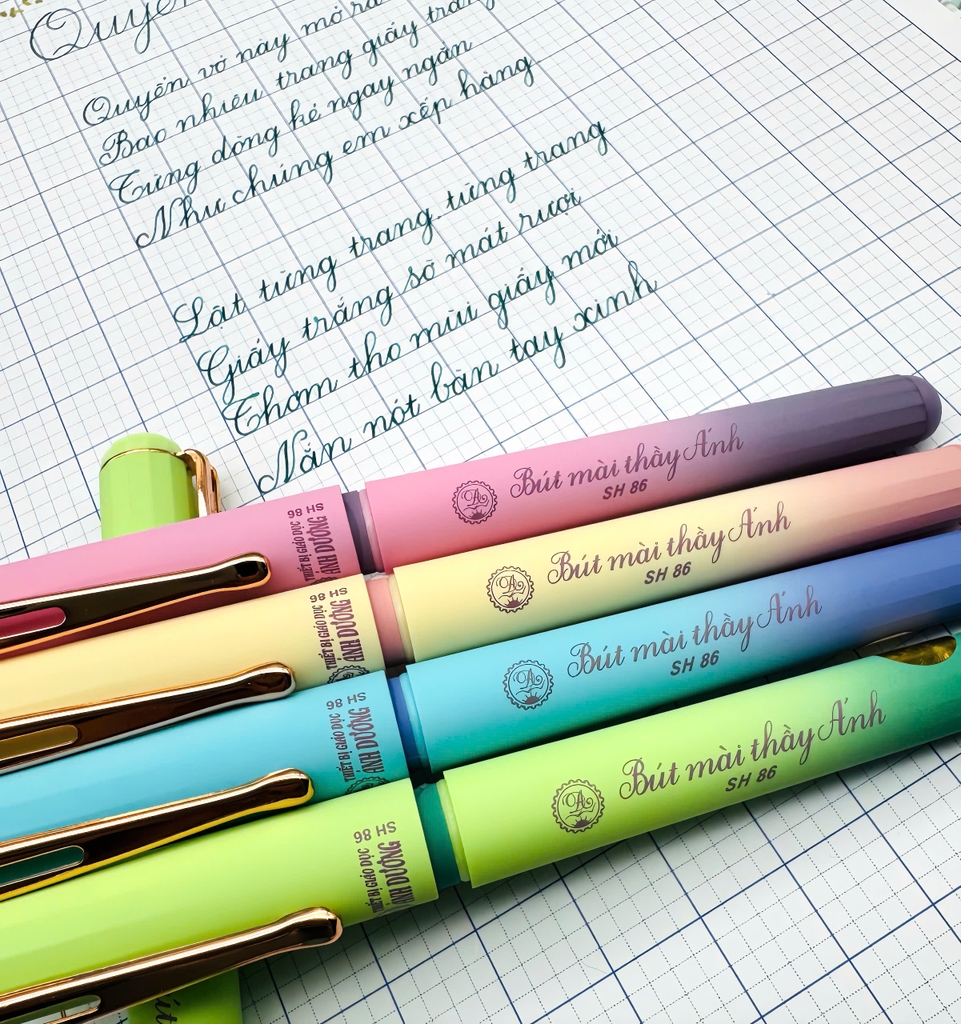 Quyển
Quyển vở này mở ra
Bao nhiêu trang giấy trắng
Từng dòng kẻ ngay ngắn
Như chúng em xếp hàng
Lật từng trang, từng trang
Giấy trắng sờ mát rượi
Thơm tho mùi giấy mới
Nắn nót bàn tay xinh
Bút mài thầy Ánh
SH 86
SH 86
THIẾT BỊ GIÁO DỤC
ÁNH DƯƠNG
Bút mài thầy Ánh
SH 86
SH 86
THIẾT BỊ GIÁO DỤC
ÁNH DƯƠNG
Bút mài thầy Ánh
SH 86
SH 86
THIẾT BỊ GIÁO DỤC
ÁNH DƯƠNG
Bút mài thầy Ánh
SH 86
SH 86
THIẾT BỊ GIÁO DỤC
ÁNH DƯƠNG